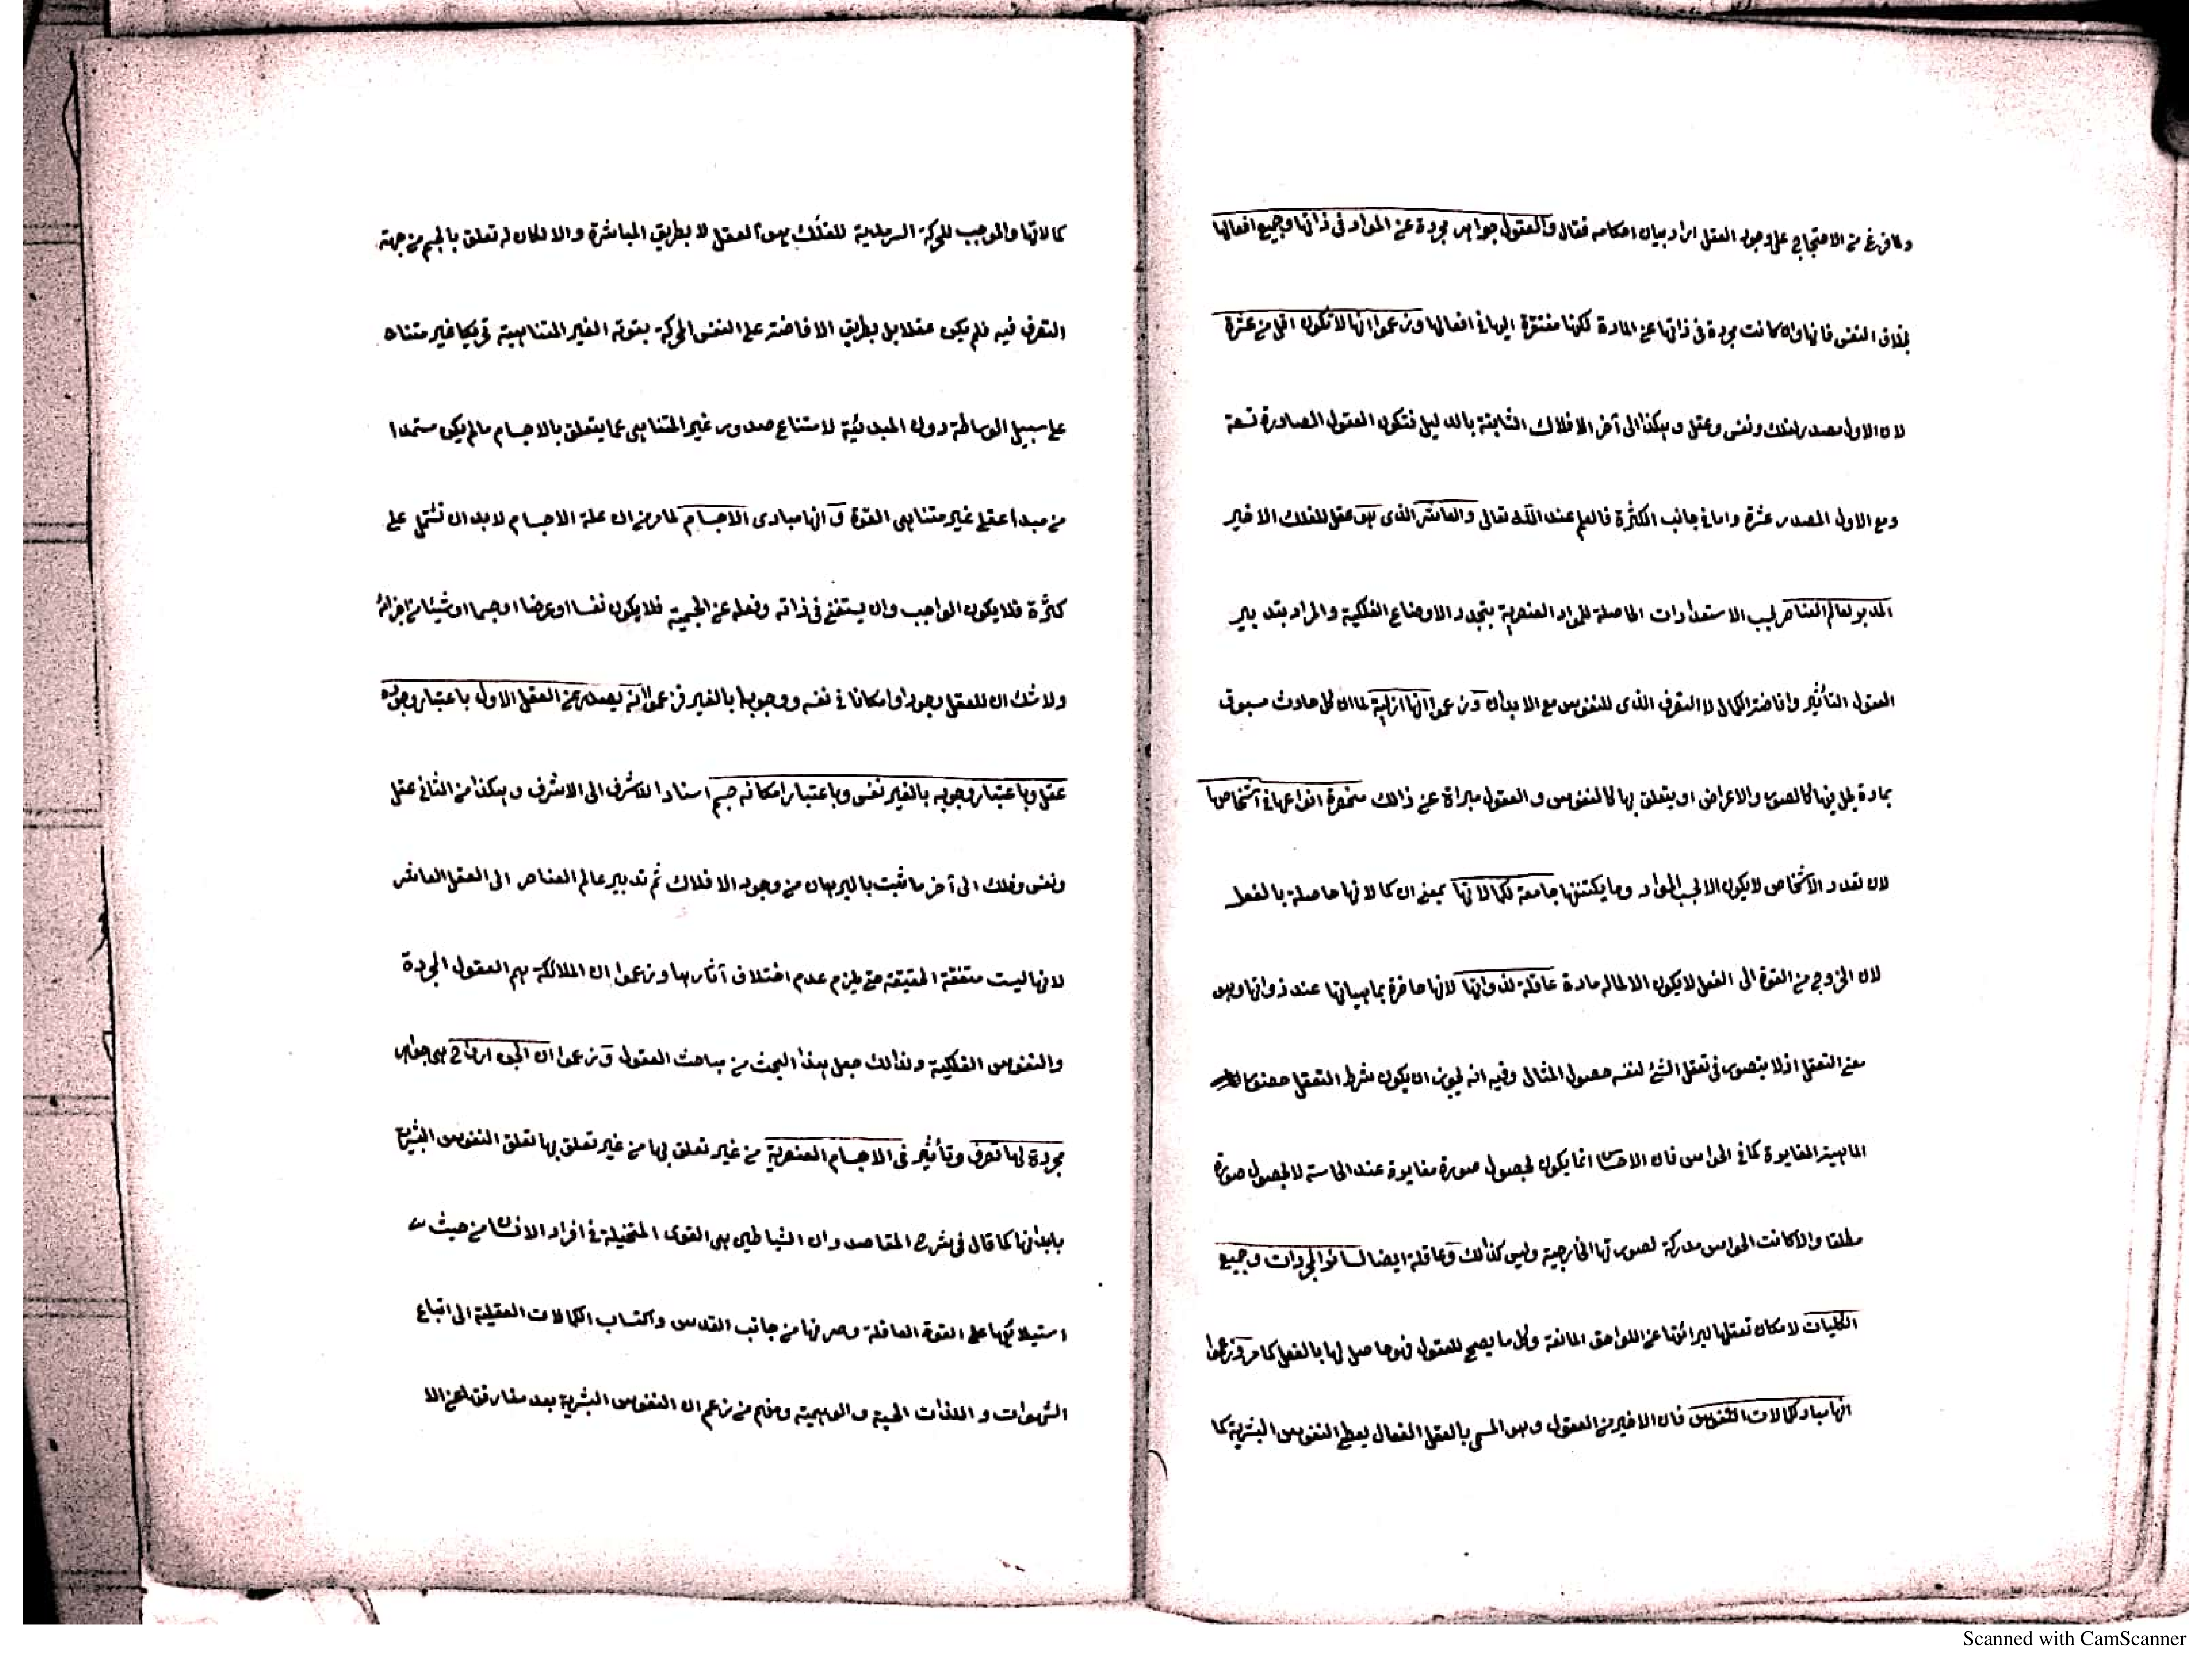 ولما فرغ من الاحتجاج على وجود العقل اراد بيان احكامه فقال والعقول جواهر مجردة عن المواد فى ذاتها وجميع افعالها
بخلاف النفس فانها وان كانت مجردة فى ذاتها عن المادة لكنها مفتقرة اليها فى افعالها وزعموا انها لا تكون اقل من عشرة
لان الاول مصدر لفلك ونفس وعقل وهكذا الى آخر الافلاك الثابتة بالدليل فتكون العقول الصادرة تسعة
ومع الاول المصدر عشرة واما فى جانب الكثرة فالعلم عند الله تعالى والعاشر الذى هو عقل للفلك الاخير
المدبر لعالم العناصر بحسب الاستعدادات الحاصلة للمواد العنصرية بتجدد الاوضاع الفلكية والمراد بتدبير
العقول التأثير وافاضة الكمال لا التصرف الذى للنفوس مع الابدان وزعموا انها ازلية لما ان كل حادث مسبوق
بمادة يحل فيها كالصور والاعراض او يتعلق بها كالنفوس والعقول مبراة عن ذالك منحصرة انواعها فى اشخاصها
لان تعدد الاشخاص لا يكون الا بحسب المواد وما يكتنفها جامعة لكمالاتها بمعنى ان كمالاتها حاصلة بالفعل
لان الخروج من القوة الى الفعل لا يكون الا لما له مادة عاقلة لذواتها لانها حاضرة بماهياتها عند ذواتها وهو
معنى التعقل اذ لا يتصور فى تعقل الشئ لنفسه حصول المثال وفيه انه يجوز ان يكون شرط التعقل حضور
الماهية المغايرة كما فى الحواس فان الاحساس انما يكون بحصول صورة مغايرة عند الحاسة لا بحصول صورة
مطلقا والا كانت الحواس مدركة لصورتها الخارجية وليس كذالك وعاقلة ايضا لسائر المجردات وجميع
الكليات لامكان تعقلها لبرائتها عن اللواحق المانعة وكل ما يصح للعقول فهو حاصل لها بالفعل كما مر وزعموا
انها مباد لكمالات النفوس فان الاخير من العقول وهو المسمى بالعقل الفعال يعطى النفوس البشرية كما
كمالاتها والموجب للحركة السرمدية للفلك هو العقل لا بطريق المباشرة والا لكان له تعلق بالجسم من جهة
التصرف فيه فلم يكن عقلا بل بطريق الافاضة على النفس المحركة بقوته الغير المتناهية تحريكا غير متناه
على سبيل الوساطة دون المبدئية لامتناع صدور غير المتناهى عما يتعلق بالاجسام ما لم يكن مستمدا
من مبدا عقلى غير متناهى القوة و انها مبادى الاجسام لما مر من ان علة الاجسام لا بد ان تشتمل على
كثرة فلا يكون الواجب وان يستغنى فى ذاته وفعله عن الجسمية فلا يكون نفسا او عرضا او جسما او شيئا من اجزائه
ولا شك ان للعقل وجودا وامكانا فى نفسه ووجوبا بالغير فزعموا انه يصدر عن العقل الاول باعتبار وجوده
عقل وباعتبار وجوبه بالغير نفس وباعتبار امكانه جسم اسنادا للاشرف الى الاشرف وهكذا من الثانى عقل
ونفس وفلك الى آخر ما ثبت بالبرهان من وجود الافلاك ثم تدبير عالم العناصر الى العقل العاشر
لانها ليست متفقة الحقيقة حتى يلزم عدم اختلاف آثارها وزعموا ان الملائكة هم العقول المجردة
والنفوس الفلكية ولذالك جعل هذا البحث من مباحث العقول وزعموا ان الجن ارواح هى جواهر
مجردة لها تصرف وتأثير فى الاجسام العنصرية من غير تعلق بها من غير تعلق بها تعلق النفوس البشرية
بابدانها كما قال فى شرح المقاصد وان الشياطين هى القوى المتخيلة فى افراد الانسان من حيث
استيلائها على القوة العاقلة وصرفها من جانب القدس واكتساب الكمالات العقلية الى اتباع
الشهوات واللذات الحسية والوهمية ومنهم من زعم ان النفوس البشرية بعد مفارقتها عن الا
Scanned with CamScanner